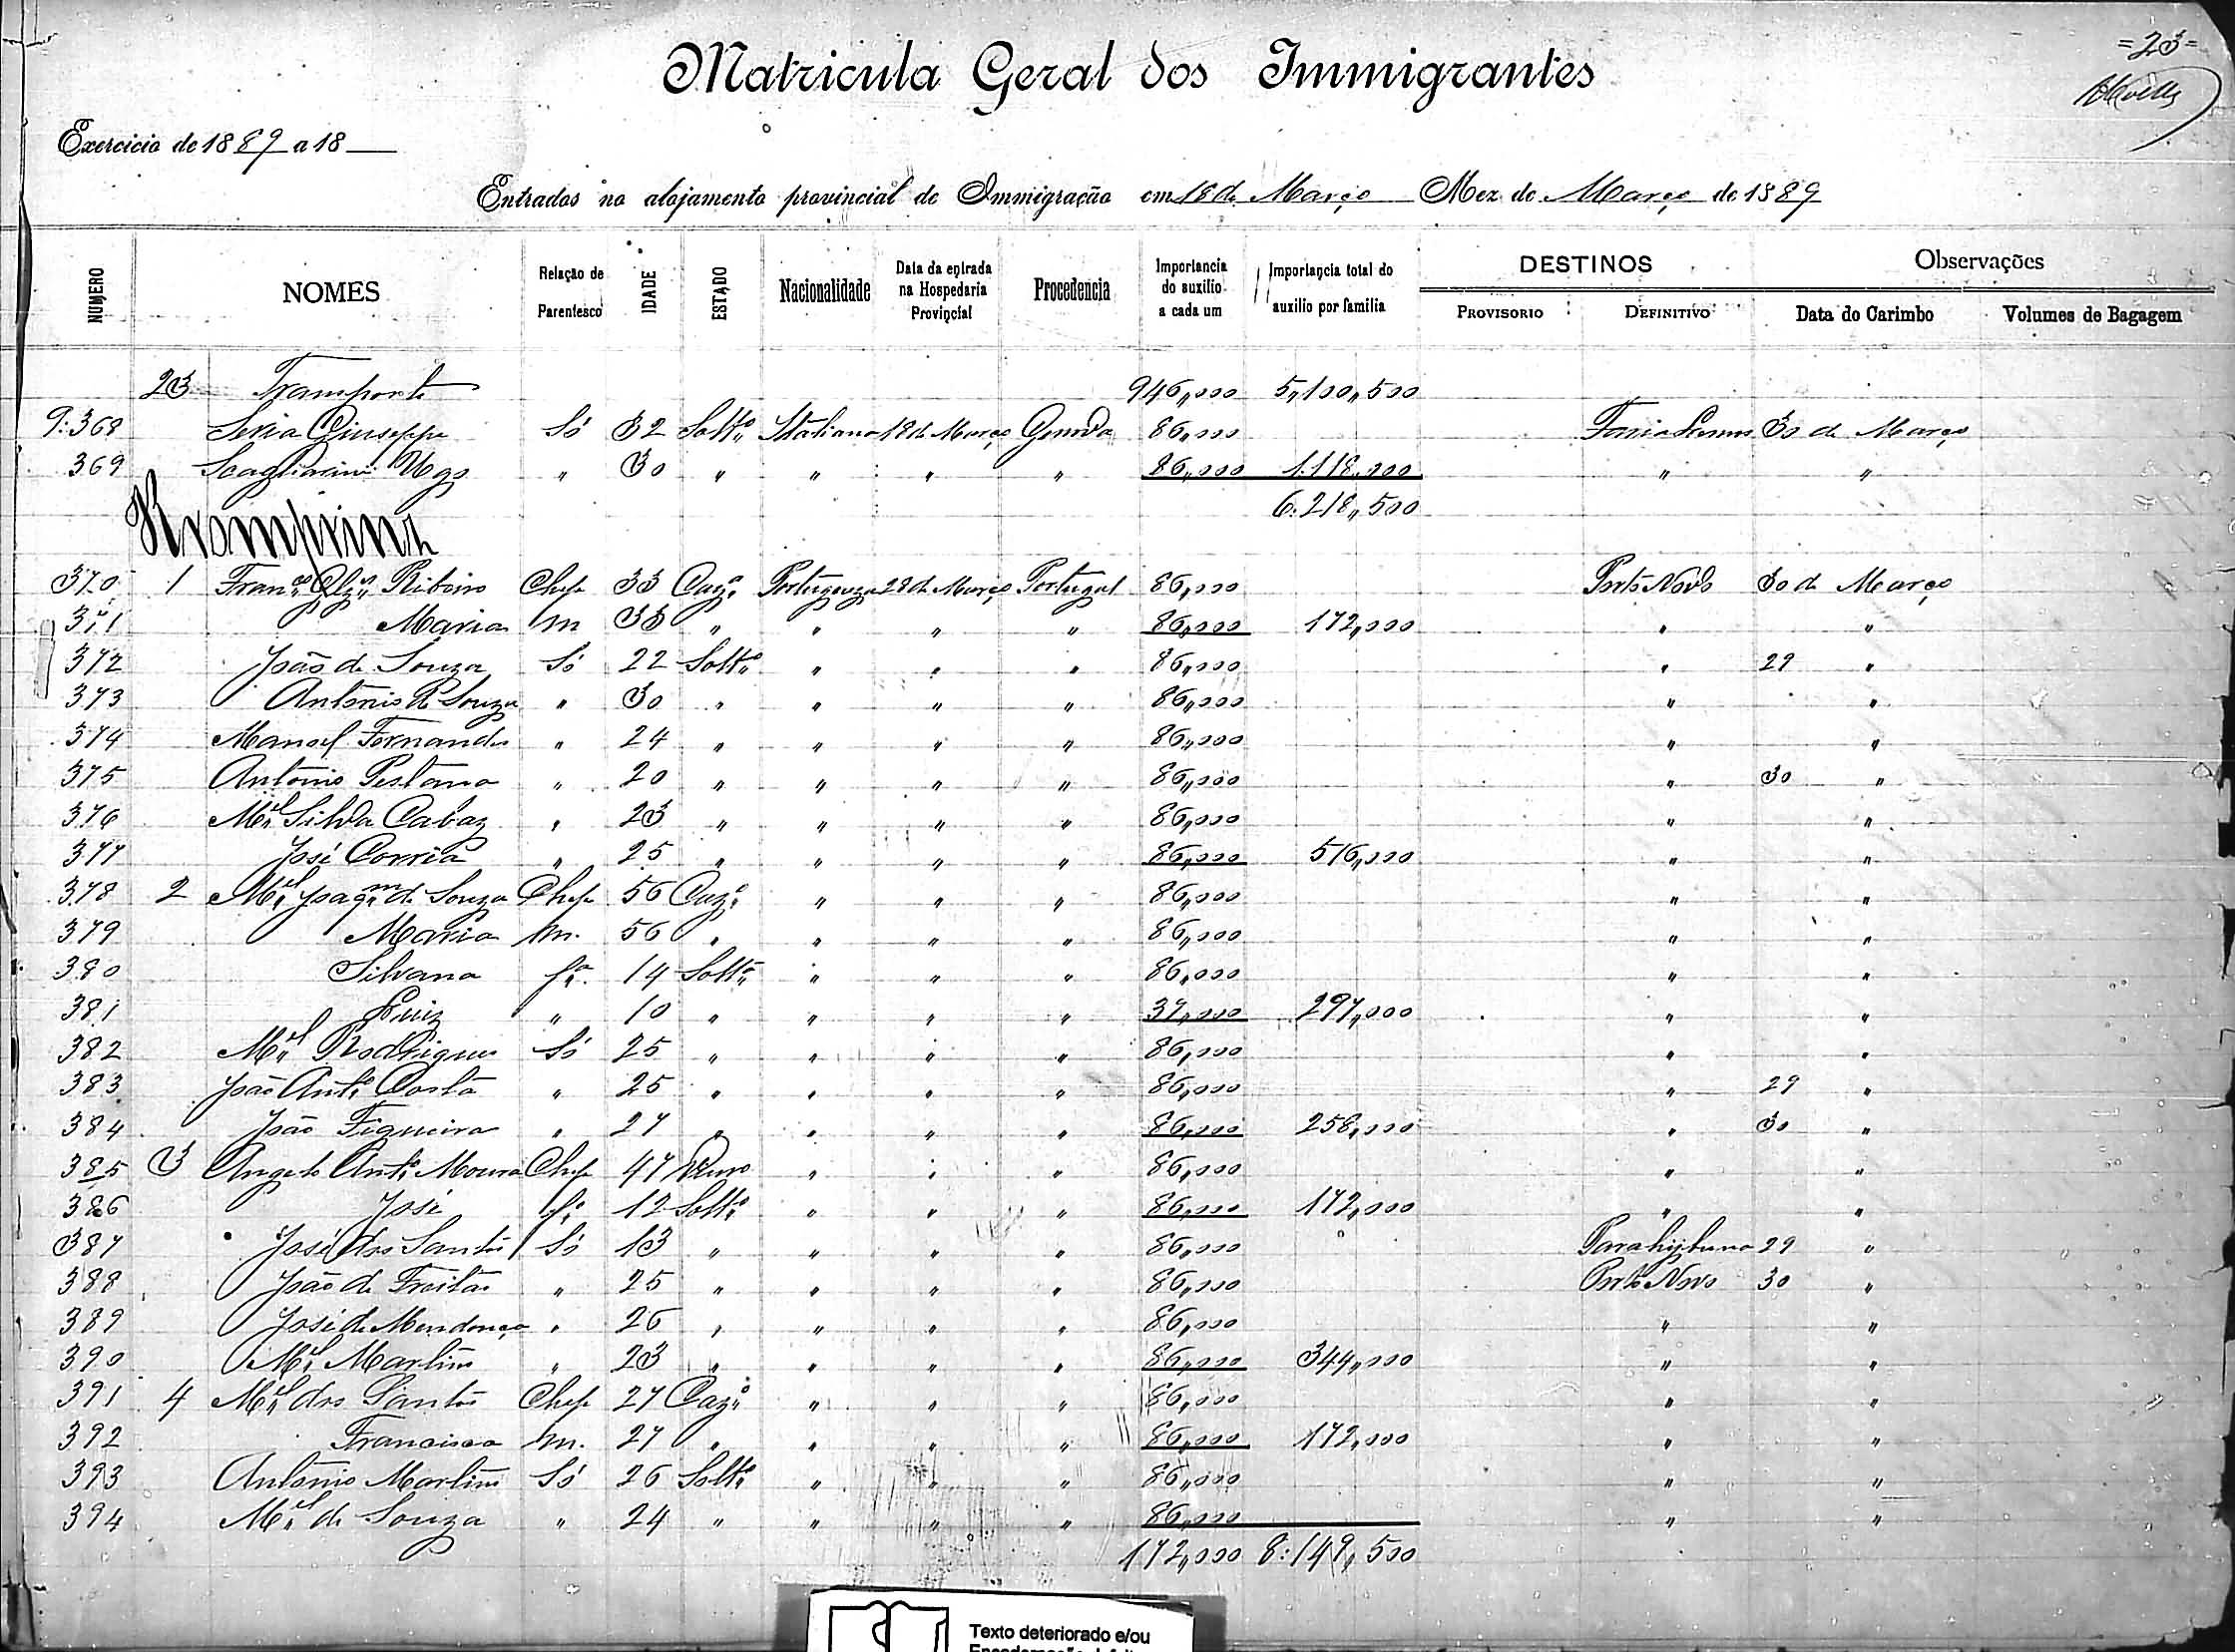 =23=
Matricula Geral dos Immigrantes
Exercicio de 1889 a 18
Entrados no alojamento provincial de Immigração em 18 de Março Mez de Março de 1889
NUMERO NOMES Relação de Parentesco IDADE ESTADO Nacionalidade Data da entrada na Hospedaria Provincial Procedencia Importancia do auxilio a cada um Importancia total do auxilio por familia DESTINOS PROVISORIO DEFINITIVO Observações Data do Carimbo Volumes de Bagagem
23 Transporte 946,,000 5,,100,,500
9:368 Giuseppe Só 32 Soltº Italiana 18 de Março Genova 86,,000 Faria Lemos 30 de Março
369 Scagliarini Ugo " 30 " " " " 86,,000 1:118,,000 " "
6:218,,500
370 1 Franco Glz Ribeiro Chefe 33 Cazº Portugueza 28 de Março Portugal 86,,000 Porto Novo 30 de Março
371 Maria m 35 " " " " 86,,000 172,,000 " "
372 João de Souza Só 22 Soltº " " " 86,,000 " 29 "
373 Antonio R Souza " 30 " " " " 86,,000 " "
374 Manoel Fernandes " 24 " " " " 86,,000 " "
375 Antonio Pestana " 20 " " " " 86,,000 " 30 "
376 Mel Silva Cabaz " 23 " " " " 86,,000 " "
377 José Correia " 25 " " " " 86,,000 516,,000 " "
378 2 Mel Joaqm de Souza Chefe 56 Cazº " " " 86,,000 " "
379 Maria m. 56 " " " " 86,,000 " "
380 Silvana fª. 14 Soltª " " " 86,,000 " "
381 Luiz " 10 " " " " 39,,000 297,,000 " "
382 Mel Rodrigues Só 25 " " " " 86,,000 " "
383 João Antº Costa " 25 " " " " 86,,000 " 29 "
384 João Figueira " 27 " " " " 86,,000 258,,000 " 30 "
385 3 Angelo Antº Moura Chefe 47 Viuvo " " " 86,,000 " "
386 José fº 12 Soltº " " " 86,,000 172,,000 " "
387 José dos Santos Só 13 " " " " 86,,000 Parahybuna 29 "
388 João de Freitas " 25 " " " " 86,,000 Porto Novo 30 "
389 José de Mendonça " 26 " " " " 86,,000 " "
390 Mel Martins " 23 " " " " 86,,000 344,,000 " "
391 4 Mel dos Santos Chefe 27 Cazº " " " 86,,000 " "
392 Francisca m. 27 " " " " 86,,000 172,,000 " "
393 Antonio Martins Só 26 Soltº " " " 86,,000 " "
394 Mel de Souza " 24 " " " " 86,,000 " "
172,,000 8:149,,500
Texto deteriorado e/ou